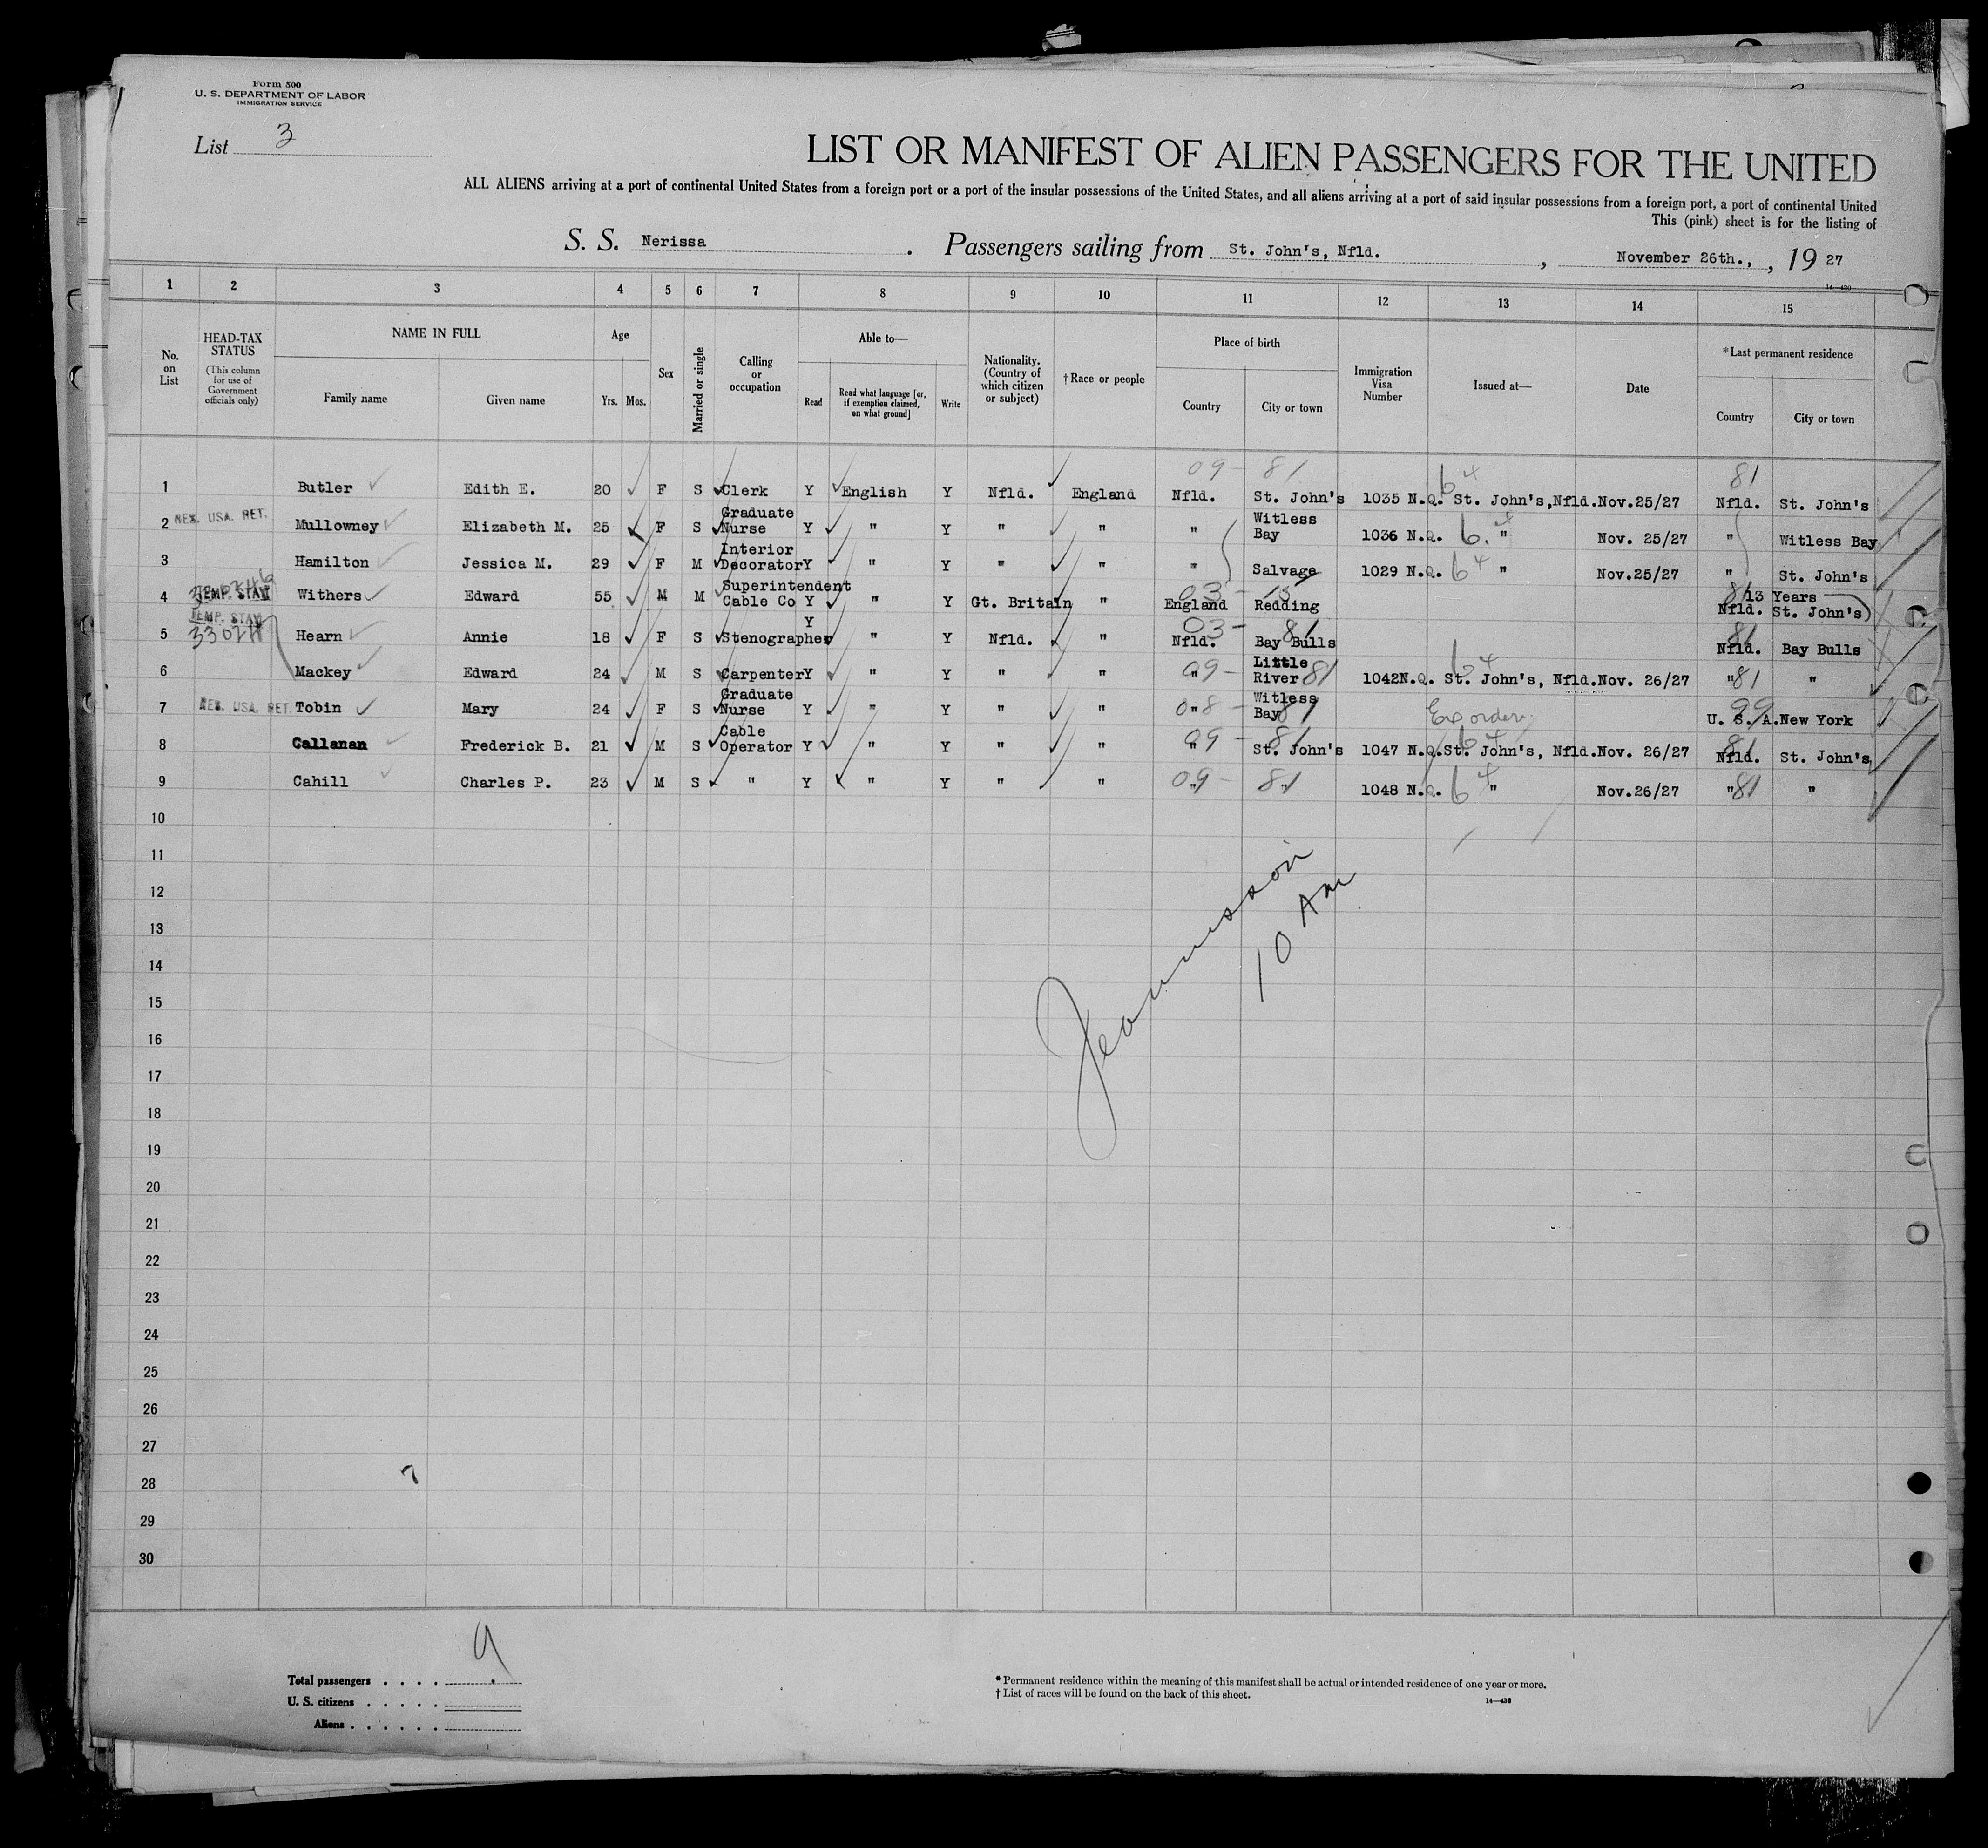 Form 500
U. S. DEPARTMENT OF LABOR
IMMIGRATION SERVICE
List 3
LIST OR MANIFEST OF ALIEN PASSENGERS FOR THE UNITED
ALL ALIENS arriving at a port of continental United States from a foreign port or a port of the insular possessions of the United States, and all aliens arriving at a port of said insular possessions from a foreign port, a port of continental United
This (pink) sheet is for the listing of
S. S. Nerissa . Passengers sailing from St. John's, Nfld. , November 26th., , 19 27
14—430
1 2 3 4 5 6 7 8 9 10 11 12 13 14 15
No. on List
HEAD-TAX STATUS
(This column for use of Government officials only)
NAME IN FULL
Family name Given name
Age
Yrs. Mos.
Sex
Married or single
Calling or occupation
Able to—
Read
Read what language [or, if exemption claimed, on what ground]
Write
Nationality. (Country of which citizen or subject)
†Race or people
Place of birth
Country City or town
Immigration Visa Number
Issued at—
Date
*Last permanent residence
Country City or town
09 - 81 64 81
1 Butler Edith E. 20 F S Clerk Y English Y Nfld. England Nfld. St. John's 1035 N.Q. St. John's,Nfld. Nov.25/27 Nfld. St. John's
2 NEX. USA. RET. Mullowney Elizabeth M. 25 F S Graduate Nurse Y " Y " " " Witless Bay 1036 N.Q. 64 " Nov. 25/27 " Witless Bay
3 Hamilton Jessica M. 29 F M Interior Decorator Y " Y " " " Salvage 1029 N.Q. 64 " Nov.25/27 " St. John's
4 TEMP. STAY Withers Edward 55 M M Superintendent Cable Co Y " Y Gt. Britain " 03 - 15 England Redding 81 13 Years Nfld. St. John's
5 TEMP. STAY Hearn Annie 18 F S Stenographer Y " Y Nfld. " 03 - 81 Nfld. Bay Bulls 81 Nfld. Bay Bulls
6 Mackey Edward 24 M S Carpenter Y " Y " " 09 - 81 " Little River 1042N.Q. 64 St. John's, Nfld. Nov. 26/27 " 81 "
7 NEX. USA. RET. Tobin Mary 24 F S Graduate Nurse Y " Y " " 08 - 81 " Witless Bay 99 U. S. A. New York
8 Callanan Frederick B. 21 M S Cable Operator Y " Y " " 09 - 81 " St. John's 1047 N.Q. 64 St. John's, Nfld. Nov. 26/27 81 Nfld. St. John's
9 Cahill Charles P. 23 M S " Y " Y " " 09 - 81 " " 1048 N.Q. 64 " Nov.26/27 " 81 "
10
11
12
13
14
15
16
17
18
19
20
21
22
23
24
25
26
27
28
29
30
10 AM
9
Total passengers . . . .
U. S. citizens . . . . .
Aliens . . . . . .
* Permanent residence within the meaning of this manifest shall be actual or intended residence of one year or more.
† List of races will be found on the back of this sheet.
14—430